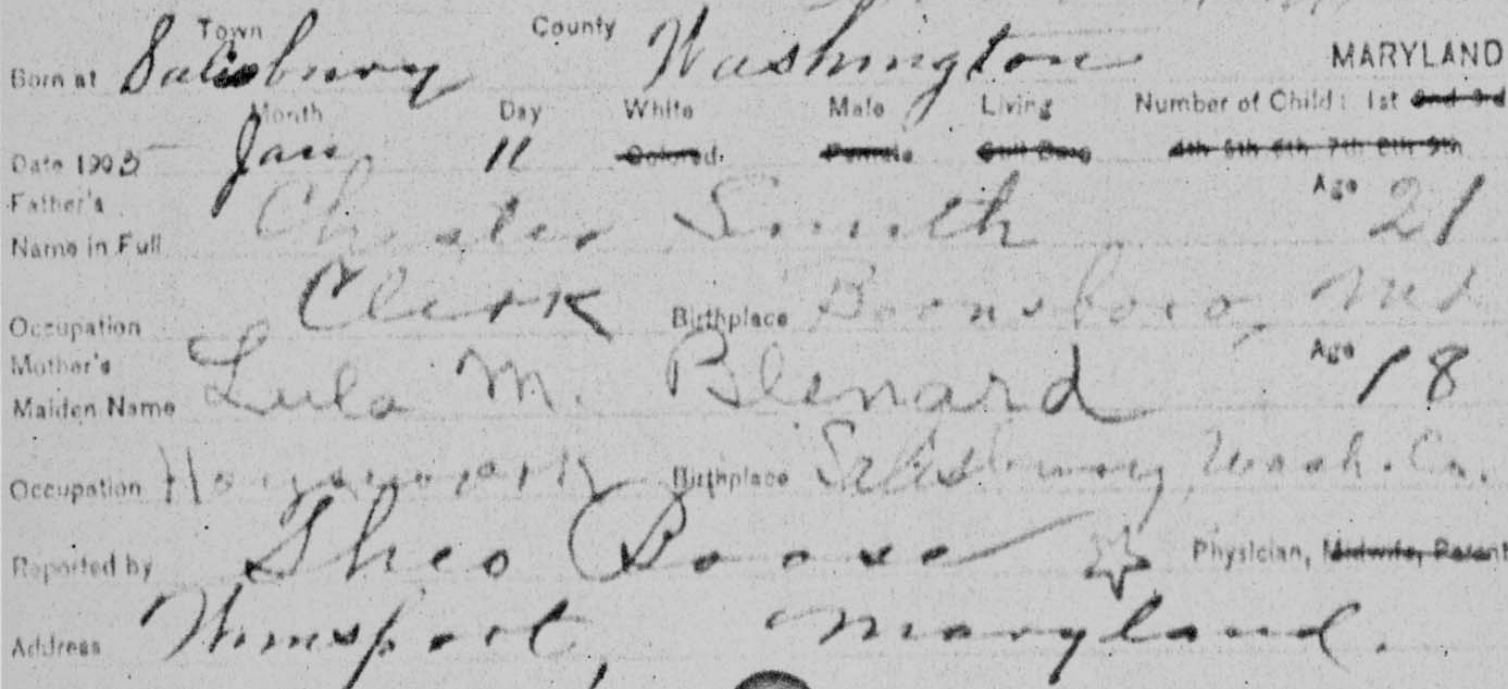 Town County
Born at Salisbury Washington MARYLAND
Month Day White Male Living Number of Child: 1st 2nd 3rd
Date 1905 Jan. 11 Colored. Female Still Born 4th 5th 6th 7th 8th 9th
Father's
Name in Full Chester Smith Age 21
Occupation Clerk Birthplace Boonsboro, Md
Mother's
Maiden Name Lula M. Blenard Age 18
Occupation Housework Birthplace Salisbury, Wash. Co.
Reported by Theo Boose Physician, Midwife, Parent
Address Wmsport, Maryland.